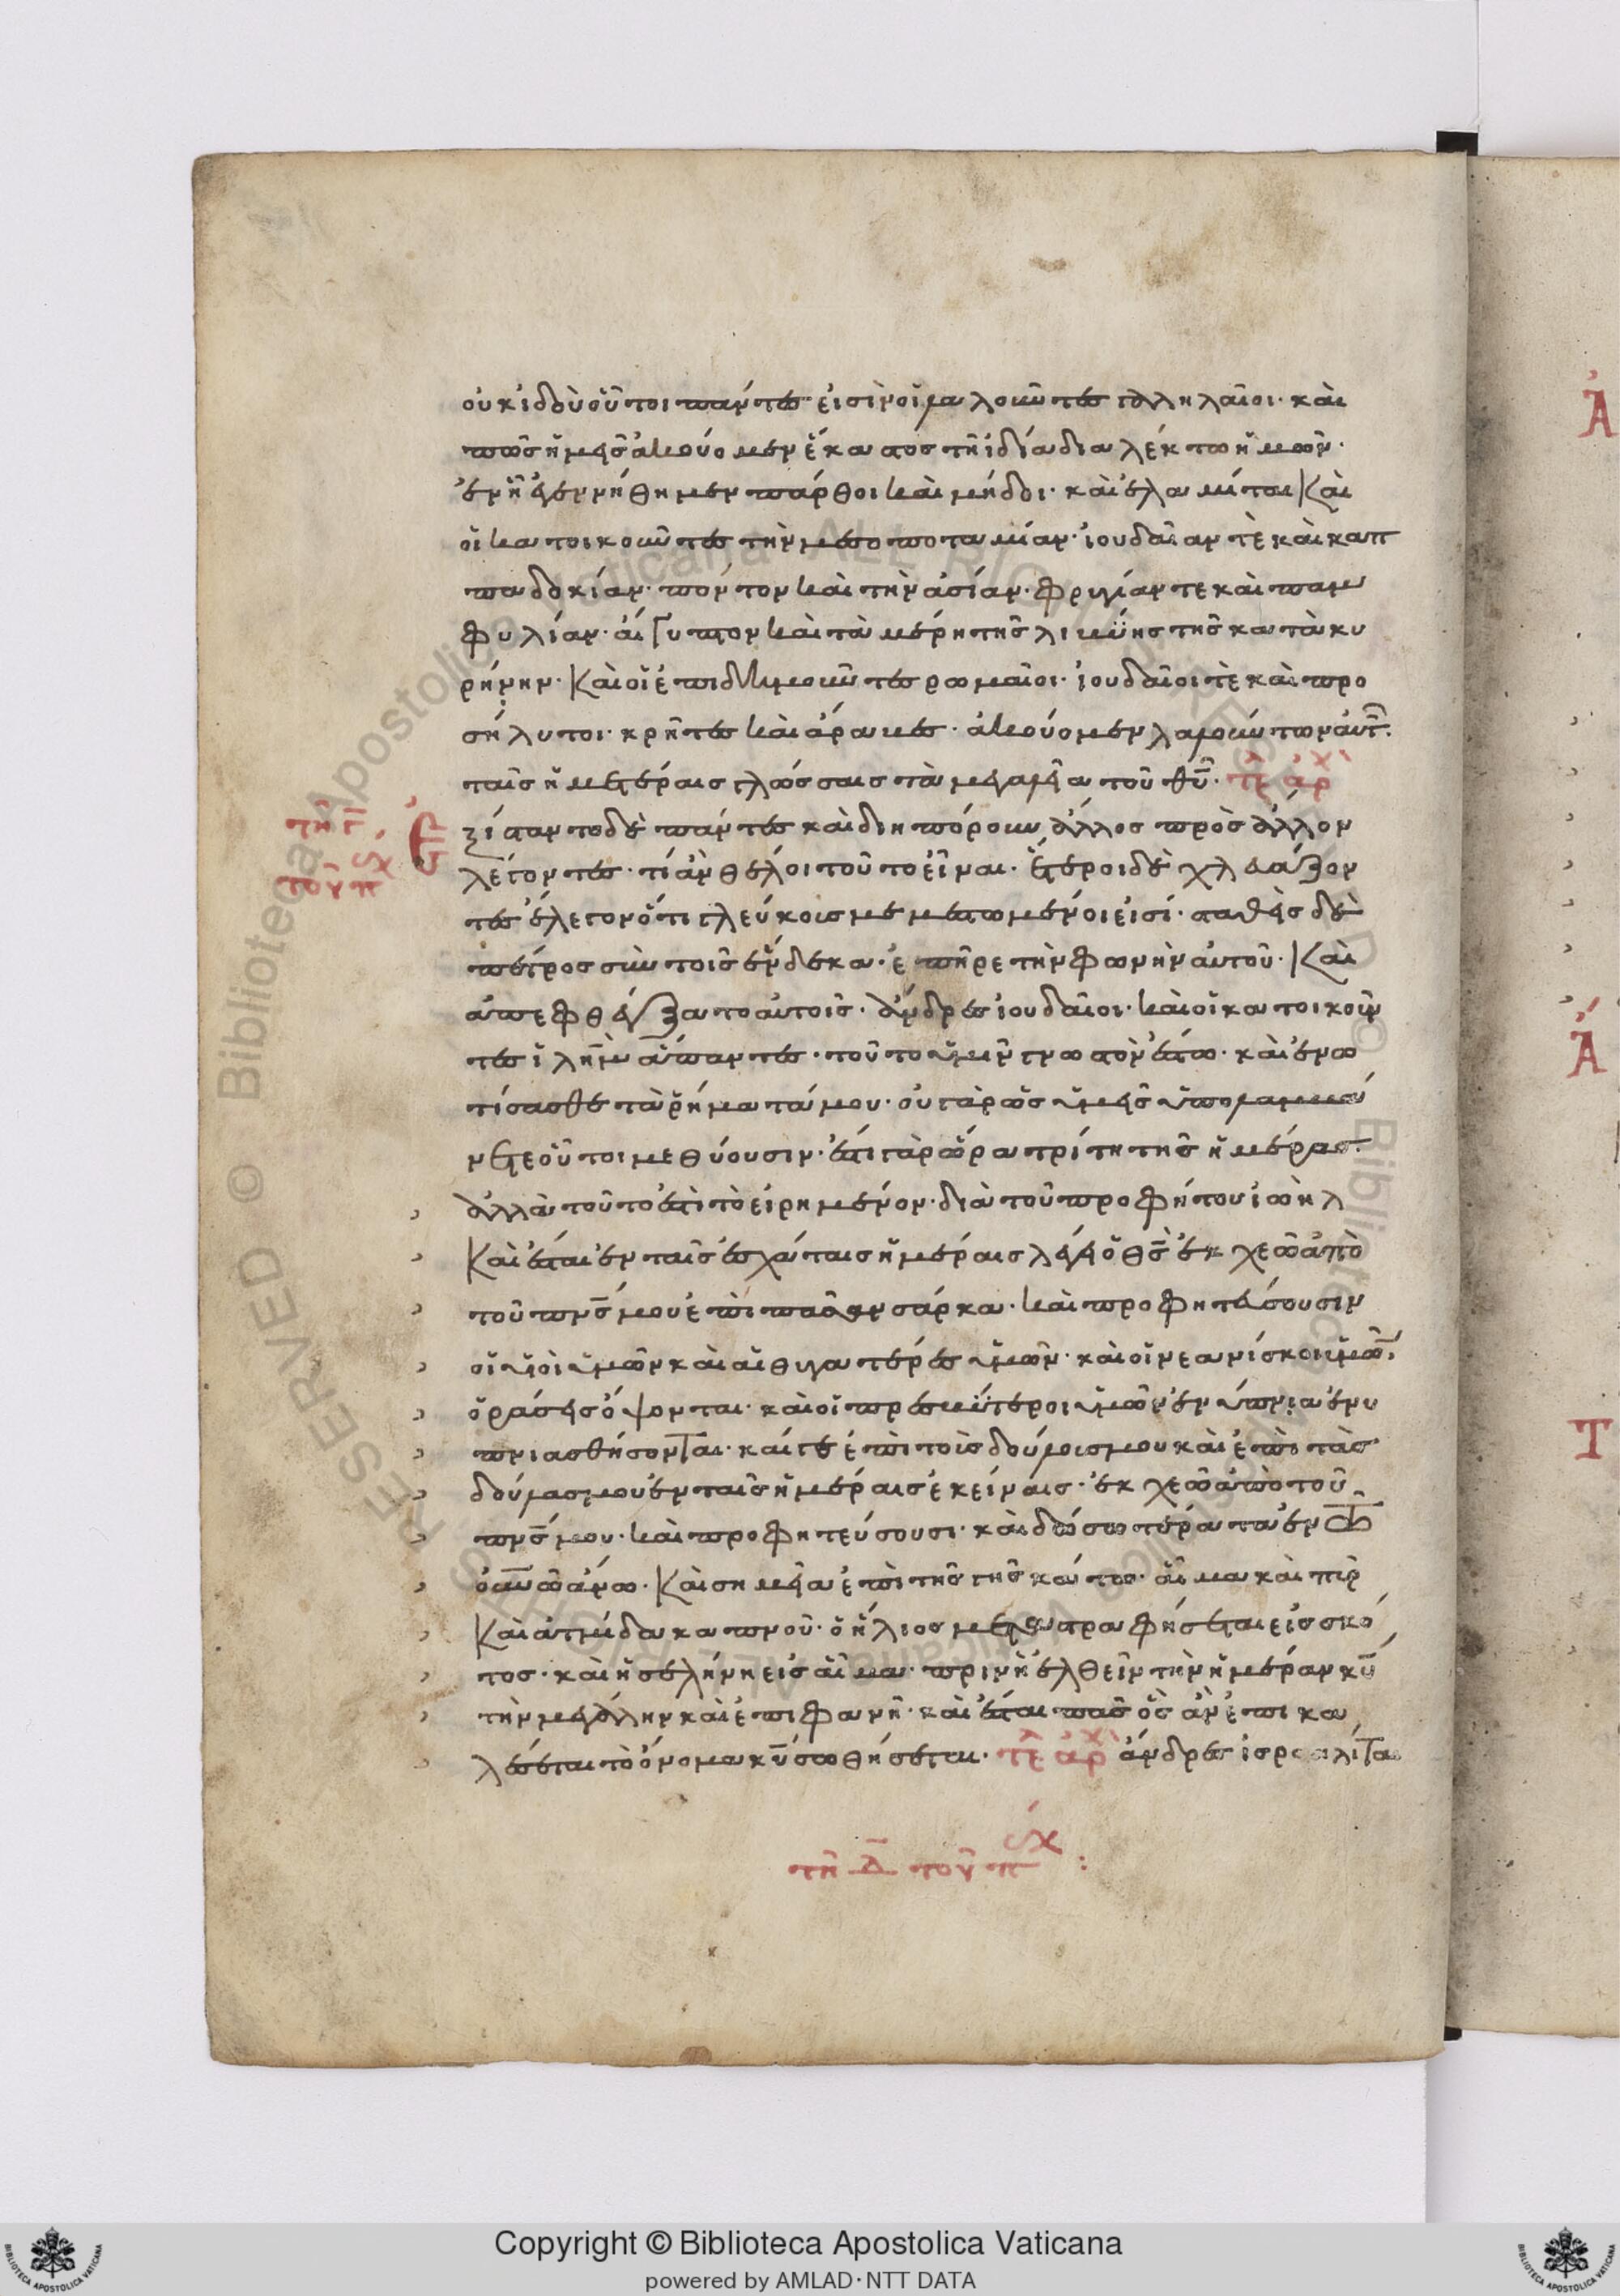 οὐκ ἰδοὺ οὗτοι πάντές εἰσὶν οἱ λαλοῦντες γαλιλαῖοι· καὶ
πῶς ἡμεῖς ἀκούομεν ἕκαστος τῆ ἰδία διαλέκτω ἡμῶν·
ἐν ἧ ἐγεννήθημεν πάρθοι καὶ μήδοι· καὶ ἐλαμίται καὶ
οἱ κατοικοῦντες τὴν μεσοποταμίαν· ἰουδαίαν τὲ καὶ καππ
παδοκίαν· πόντον καὶ τὴν ἀσίαν· φρυγίαν τε καὶ παμ
φυλίαν· αἴγυπτον καὶ τὰ μέρη τῆς λιβύης τῆς κατὰ κυ
ρήνην· καὶ οἱ ἐπιδημοῦντες ρωμαῖοι· ἰουδαῖοι τὲ καὶ προ
σήλυτοι· κρῆτες καὶ ἄραβες· ἀκούομεν λαλούντων αὐτ̑·
ταῖς ἡμετέραις γλώσσαις τὰ μεγαλεῖα τοῦ θῦ· τε αρχ
ξίσταντο δὲ πάντες καὶ διηπόρουν, ἄλλος πρὸς ἄλλον
λέγοντες· τί ἂν θέλοι τοῦτο εἶναι. ἕτεροι δὲ χλευάζον
τες ἔλεγον ὅτι γλεύκους μεμεστωμένοι εἰσί· σταθεὶς δὲ
πέτρος σὺν τοῖς ἕνδεκα· ἐπῆρε τὴν φωνὴν αὐτοῦ· καὶ
ἀπεφθέγξατο αὐτοῖς· ἄνδρες ἰουδαῖοι· καὶ οἱ κατοικοῦν
τες ἰλὴμ ἅπαντες· τοῦτο ὑμῖν γνωστὸν ἔστω· καὶ ἐνω
τίσασθε τὰ ῥήματά μου· οὐ γὰρ ὡς ὑμεῖς ὑπολαμβά
νετε οὗτοι μεθύουσιν· ἔστι γὰρ ὥρα τρίτη τῆς ἡμέρας·
ἀλλὰ τοῦτο ἐστὶ τὸ εἰρημένον· διὰ τοῦ προφήτου ἰωὴλ
καὶ ἔσται ἐν ταῖς ἐσχάταις ἡμέραις λέγει ὁ θς ἐκχεῶ ἀπὸ
τοῦ πνς μου ἐπὶ πᾶσαν σάρκα· καὶ προφητεύσουσιν
οἱ υἱοὶ ὑμῶν καὶ αἱ θυγατέρες ὑμῶν· καὶ οἱ νεανίσκοι ὑμῶ,
ὁράσεις ὄψονται· καὶ οἱ πρεσβύτεροι ὑμῶν ἐν ὕπνια ἐνυ
πνιασθήσονται· καί γε ἐπὶ τοὺς δούλους μου καὶ ἐπὶ τὰς
δούλας μου ἐν ταῖς ἡμέραις ἐκείναις· ἐκχεῶ ἀπὸ τοῦ
πνς μου· καὶ προφητεύσουσι· καὶ δώσω τέρατα ἐν τῶ
οὐνῶ ἄνω· καὶ σημεῖα ἐπὶ τῆς γῆς κάτω· αἷμα καὶ πῦρ
καὶ ἀτμίδα καπνοῦ· ὁ ἥλιος μεταστραφήσεται εἰς σκό
τος· καὶ ἡ σελήνη εἰς αἷμα· πρὶν ἢ ἐλθεῖν τὴν ἡμέραν κυ
τὴν μεγάλην καὶ ἐπιφανῆ· καὶ ἔσται πᾶς ὃς ἂν ἐπικα
λέσεται τὸ ὄνομα κυ σωθήσεται· τε αρχ ἄνδρες ἰσραηλῖται
τη Δ του πσχ :
Copyright © Biblioteca Apostolica Vaticana
powered by AMLAD·NTT DATA